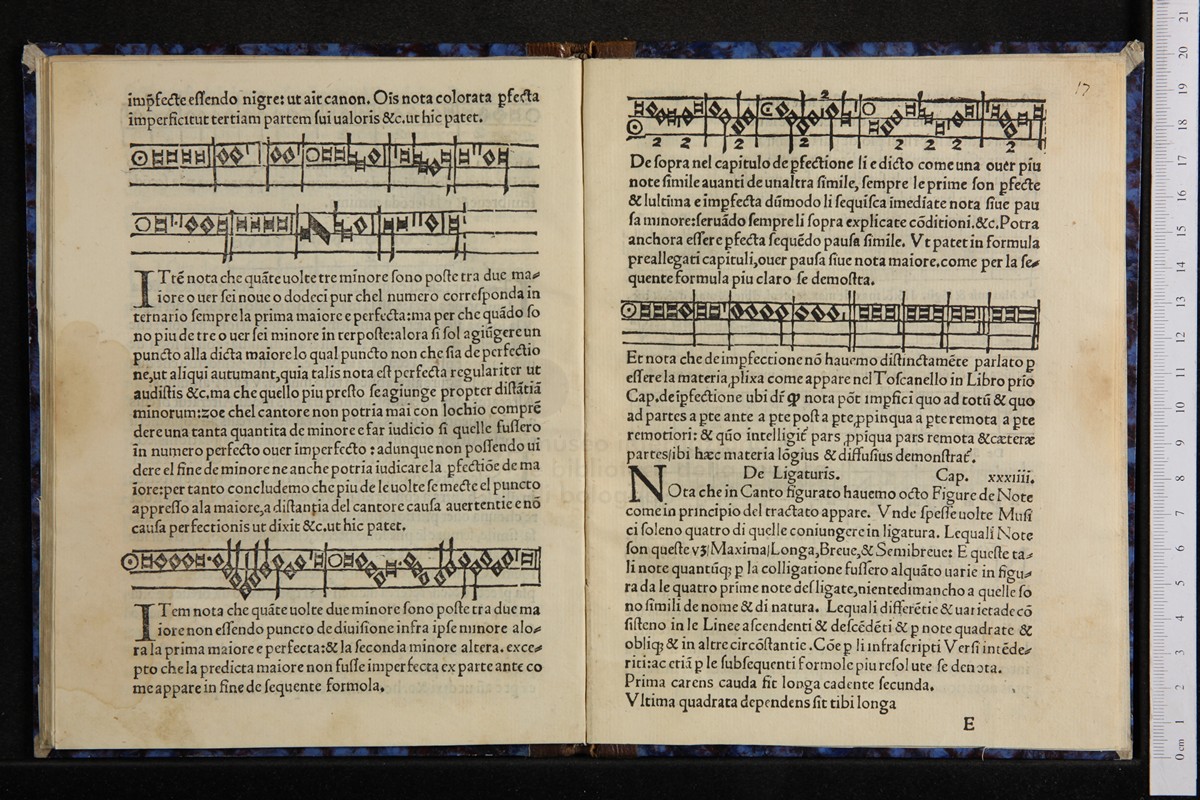 imp̃fecte essendo nigre: ut ait canon. Ois nota colorata ꝑfecta
imperficitut tertiam partem sui ualoris &c. ut hic patet.
ITrẽ nota che quãte uolte tre minore sono poste tra due ma⸗
iore o uer sei noue o dodeci pur chel numero corresponda in
ternario sempre la prima maiore e perfecta: ma per che quãdo so
no piu de tre o uer sei minore in terposte: alora si sol agiũgere un
puncto alla dicta maiore lo qual puncto non che sia de perfectio
ne, ut aliqui autumant, quia talis nota est perfecta regulariter ut
audistis &c. ma che quello piu presto se agiunge propter distãtiã
minorum: zoe chel cantore non potria mai con lochio comprẽ
dere una tanta quantita de minore e far iudicio si quelle fussero
in numero perfecto ouer imperfecto : adunque non possendo ui
dere el fine de minore ne anche potria iudicare la ꝑfectiõe de ma
iore: per tanto concludemo che piu de le uolte se mecte el puncto
appresso ala maiore, a distantia del cantore causa auertentie e nõ
causa perfectionis ut dixit &c. ut hic patet.
ITem nota che quãte uolte due minore sono poste tra due ma
iore non essendo puncto de diuisione infra ipse minore alo⸗
ra la prima maiore e perfecta: & la seconda minore altera. exce⸗
pto che la predicta maiore non fusse imperfecta ex parte ante co
me appare in fine de sequente formola.
17
2
2 2 2 2 2 2
De sopra nel capitulo de ꝑfectione li e dicto come una ouer piu
note simile auanti de unaltra simile, sempre le prime son ꝑfecte
& lultima e imꝑfecta dũmodo li sequisca imediate nota siue pau
sa minore: seruãdo sempre li sopra explicate cõditioni. &c. Potra
anchora essere ꝑfecta sequẽdo pausa simile. Vt patet in formula
preallegati capituli, ouer pausa siue nota maiore. come per la se⸗
quente formula piu claro se demostra.
Et nota che de imꝑfectione nõ hauemo distinctamẽte parlato ꝑ
essere la materia ꝓlixa come appare nel Toscanello in Libro prĩo
Cap. de ĩꝑfectione ubi dr̃ ꝙ nota põt imꝑfici quo ad totũ & quo
ad partes a ꝑte ante a ꝑte post a ꝑte ꝓpinqua a ꝑte remota a ꝑte
remotiori: & qũo intelligit̃ pars ꝓpĩqua pars remota & cæteræ
partes/ibi hæc materia lõgius & diffusius demonstrat̃.
De Ligaturis. Cap. xxxiiii.
NOta che in Canto figurato hauemo octo Figure de Note
come in principio del tractato appare. Vnde spesse uolte Musi
ci soleno quatro di quelle coniungere in ligatura. Lequali Note
son queste vʒ/Maxima/Longa, Breue, & Semibreue: E queste ta⸗
li note quantũqꝫ ꝑ la colligatione fussero alquãto uarie in figu⸗
ra da le quatro prime note desligate, nientedimancho a quelle so
no simili de nome & di natura. Lequali differẽtie & uarietade cõ
sisteno in le Linee ascendenti & descẽdẽti & ꝑ note quadrate &
obliqꝫ & in altre circõstantie. Cõe ꝑ li infrascripti Versi intẽde⸗
riti: ac etiã ꝑ le subsequenti formole piu resolute se denota.
Prima carens cauda fit longa cadente secunda.
Vltima quadrata dependens sit tibi longa
E